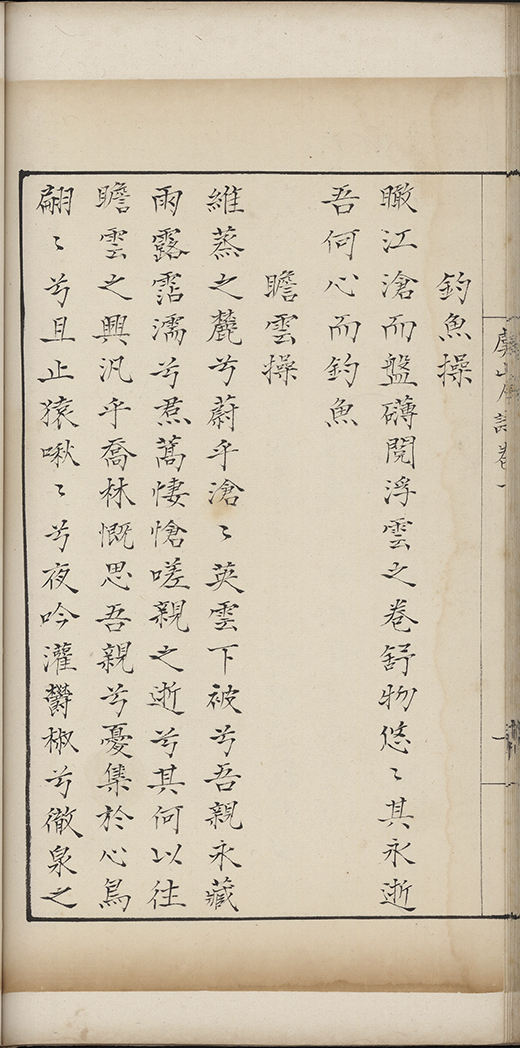 釣魚操
瞰江滄而盤礴閱浮雲之卷舒物悠〻其永逝
吾何心而釣魚
瞻雲操
維蒸之麓兮蔚乎滄〻英雲下被兮吾親永藏
雨露霑濡兮焄蒿悽愴嗟親之逝兮其何以往
瞻雲之興汎乎喬林慨思吾親兮憂集於心鳥
翩〻兮且止猿啾〻兮夜吟灌欝椒兮徹泉之